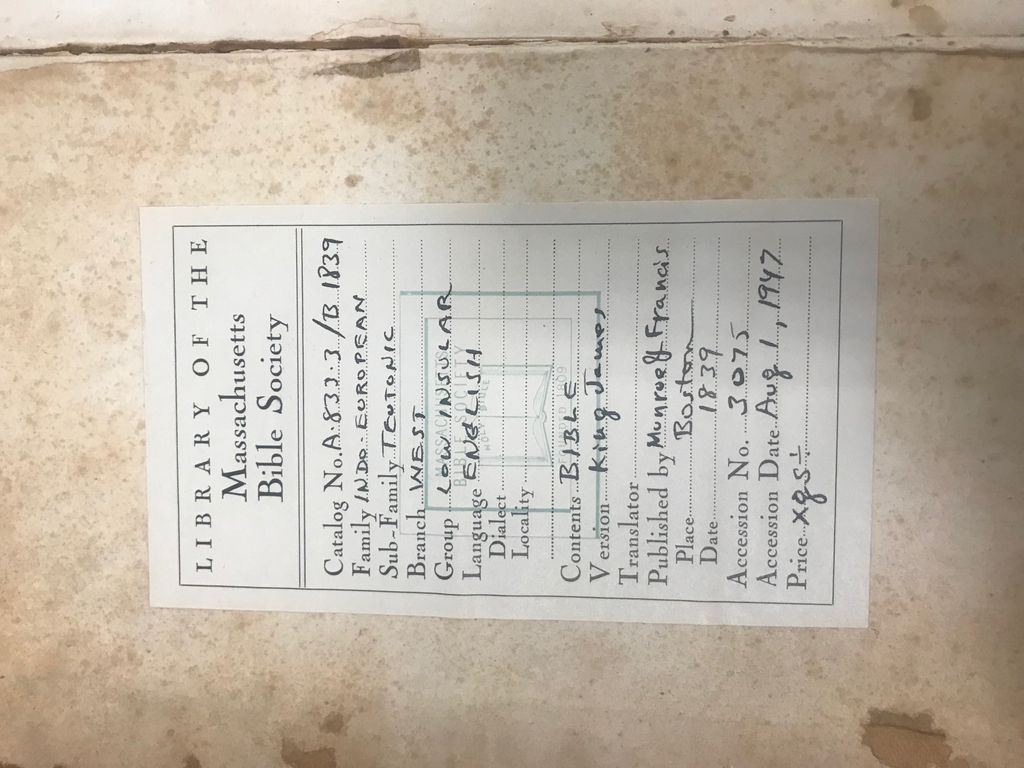 LIBRARY OF THE
Massachusetts
Bible Society
Catalog No. A.833.3/B 1839
Family INDO-EUROPEAN
Sub-Family TEUTONIC
Branch WEST
Group LOW INSULAR
Language ENGLISH
Dialect
Locality
Contents BIBLE
Version King James
Translator
Published by Munroe & Francis
Place Boston
Date 1839
Accession No. 3075
Accession Date Aug 1, 1947
Price
BIBLE SOCIETY